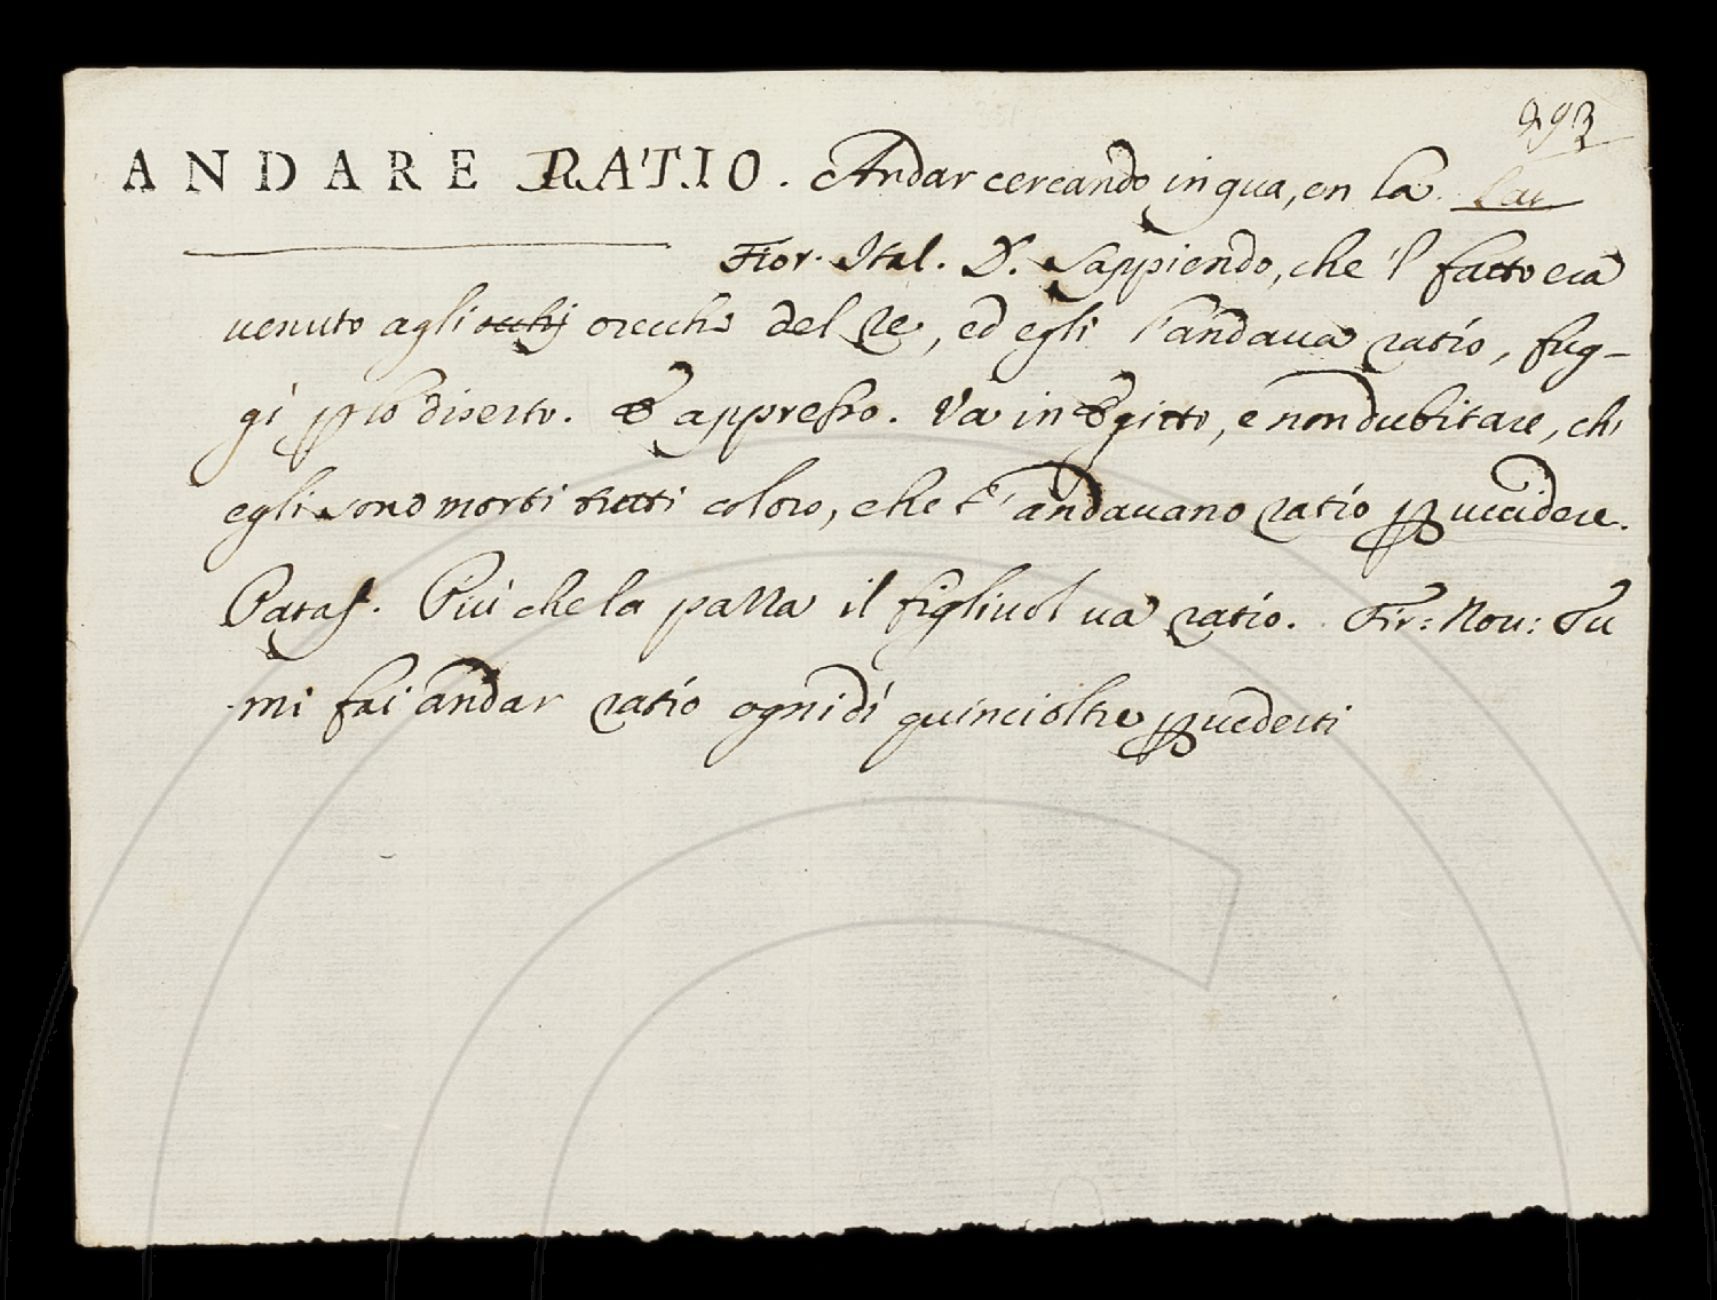 293
ANDARE RATIO. Andar cercando in qua, en la. Lat
Fior. Ital. D. Sappiendo, che 'l fatto era
venuto agli occhj orecchi del Re, ed egli l'andava ratio, fug-
gì p lo diserto. E appresso. Va in Egitto, e non dubitare, chi
egli sono morti tutti coloro, che t'andavano ratio p uccidere.
Pataf. Più che la palla il figliuol va ratio. Fir: Nov: Tu
mi fai andar ratio ogni dì quinci oltre p vederti